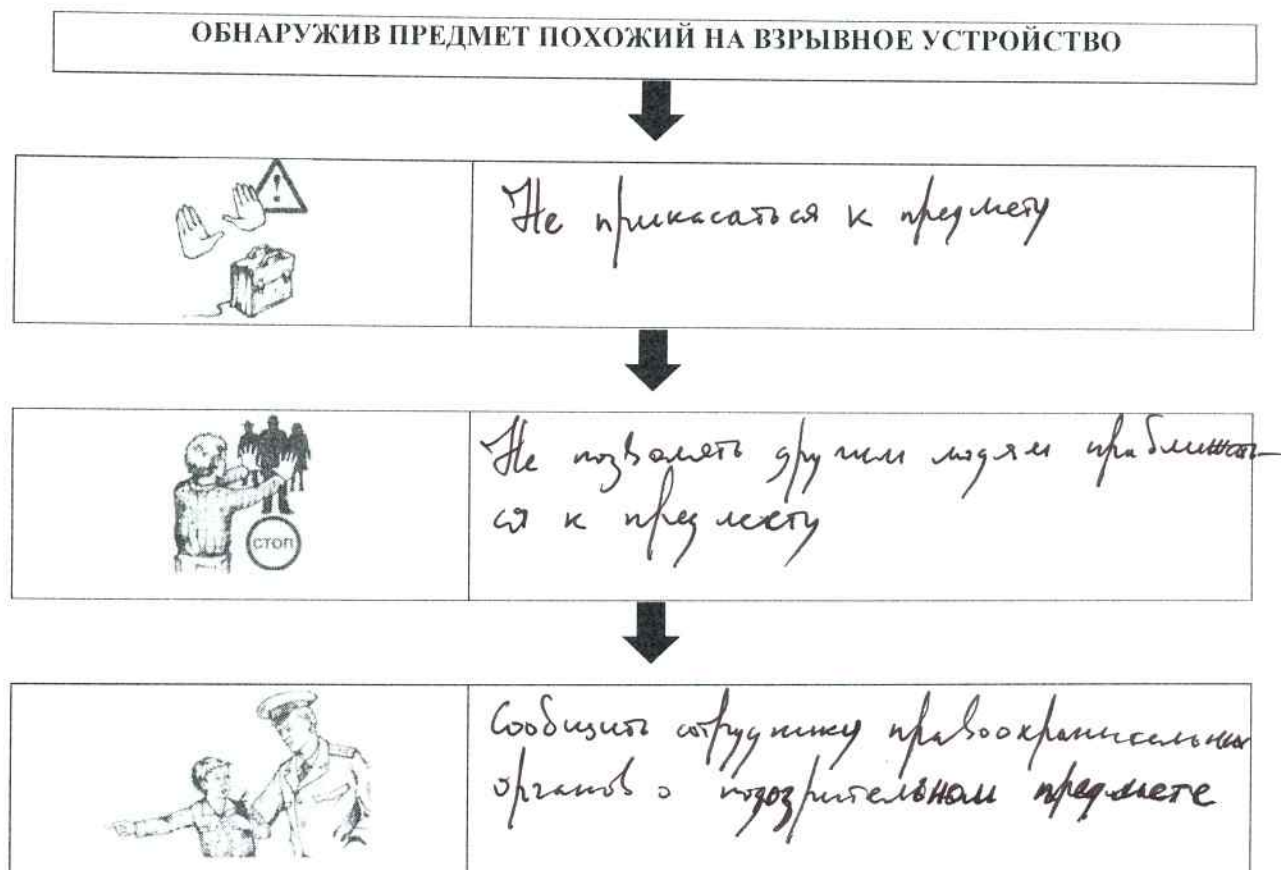 ОБНАРУЖИВ ПРЕДМЕТ ПОХОЖИЙ НА ВЗРЫВНОЕ УСТРОЙСТВО
!
Не прикасаться к предмету
СТОП
Не позволять другим людям приближать-
ся к предмету
Сообщить сотруднику правоохранительных
органов о подозрительном предмете